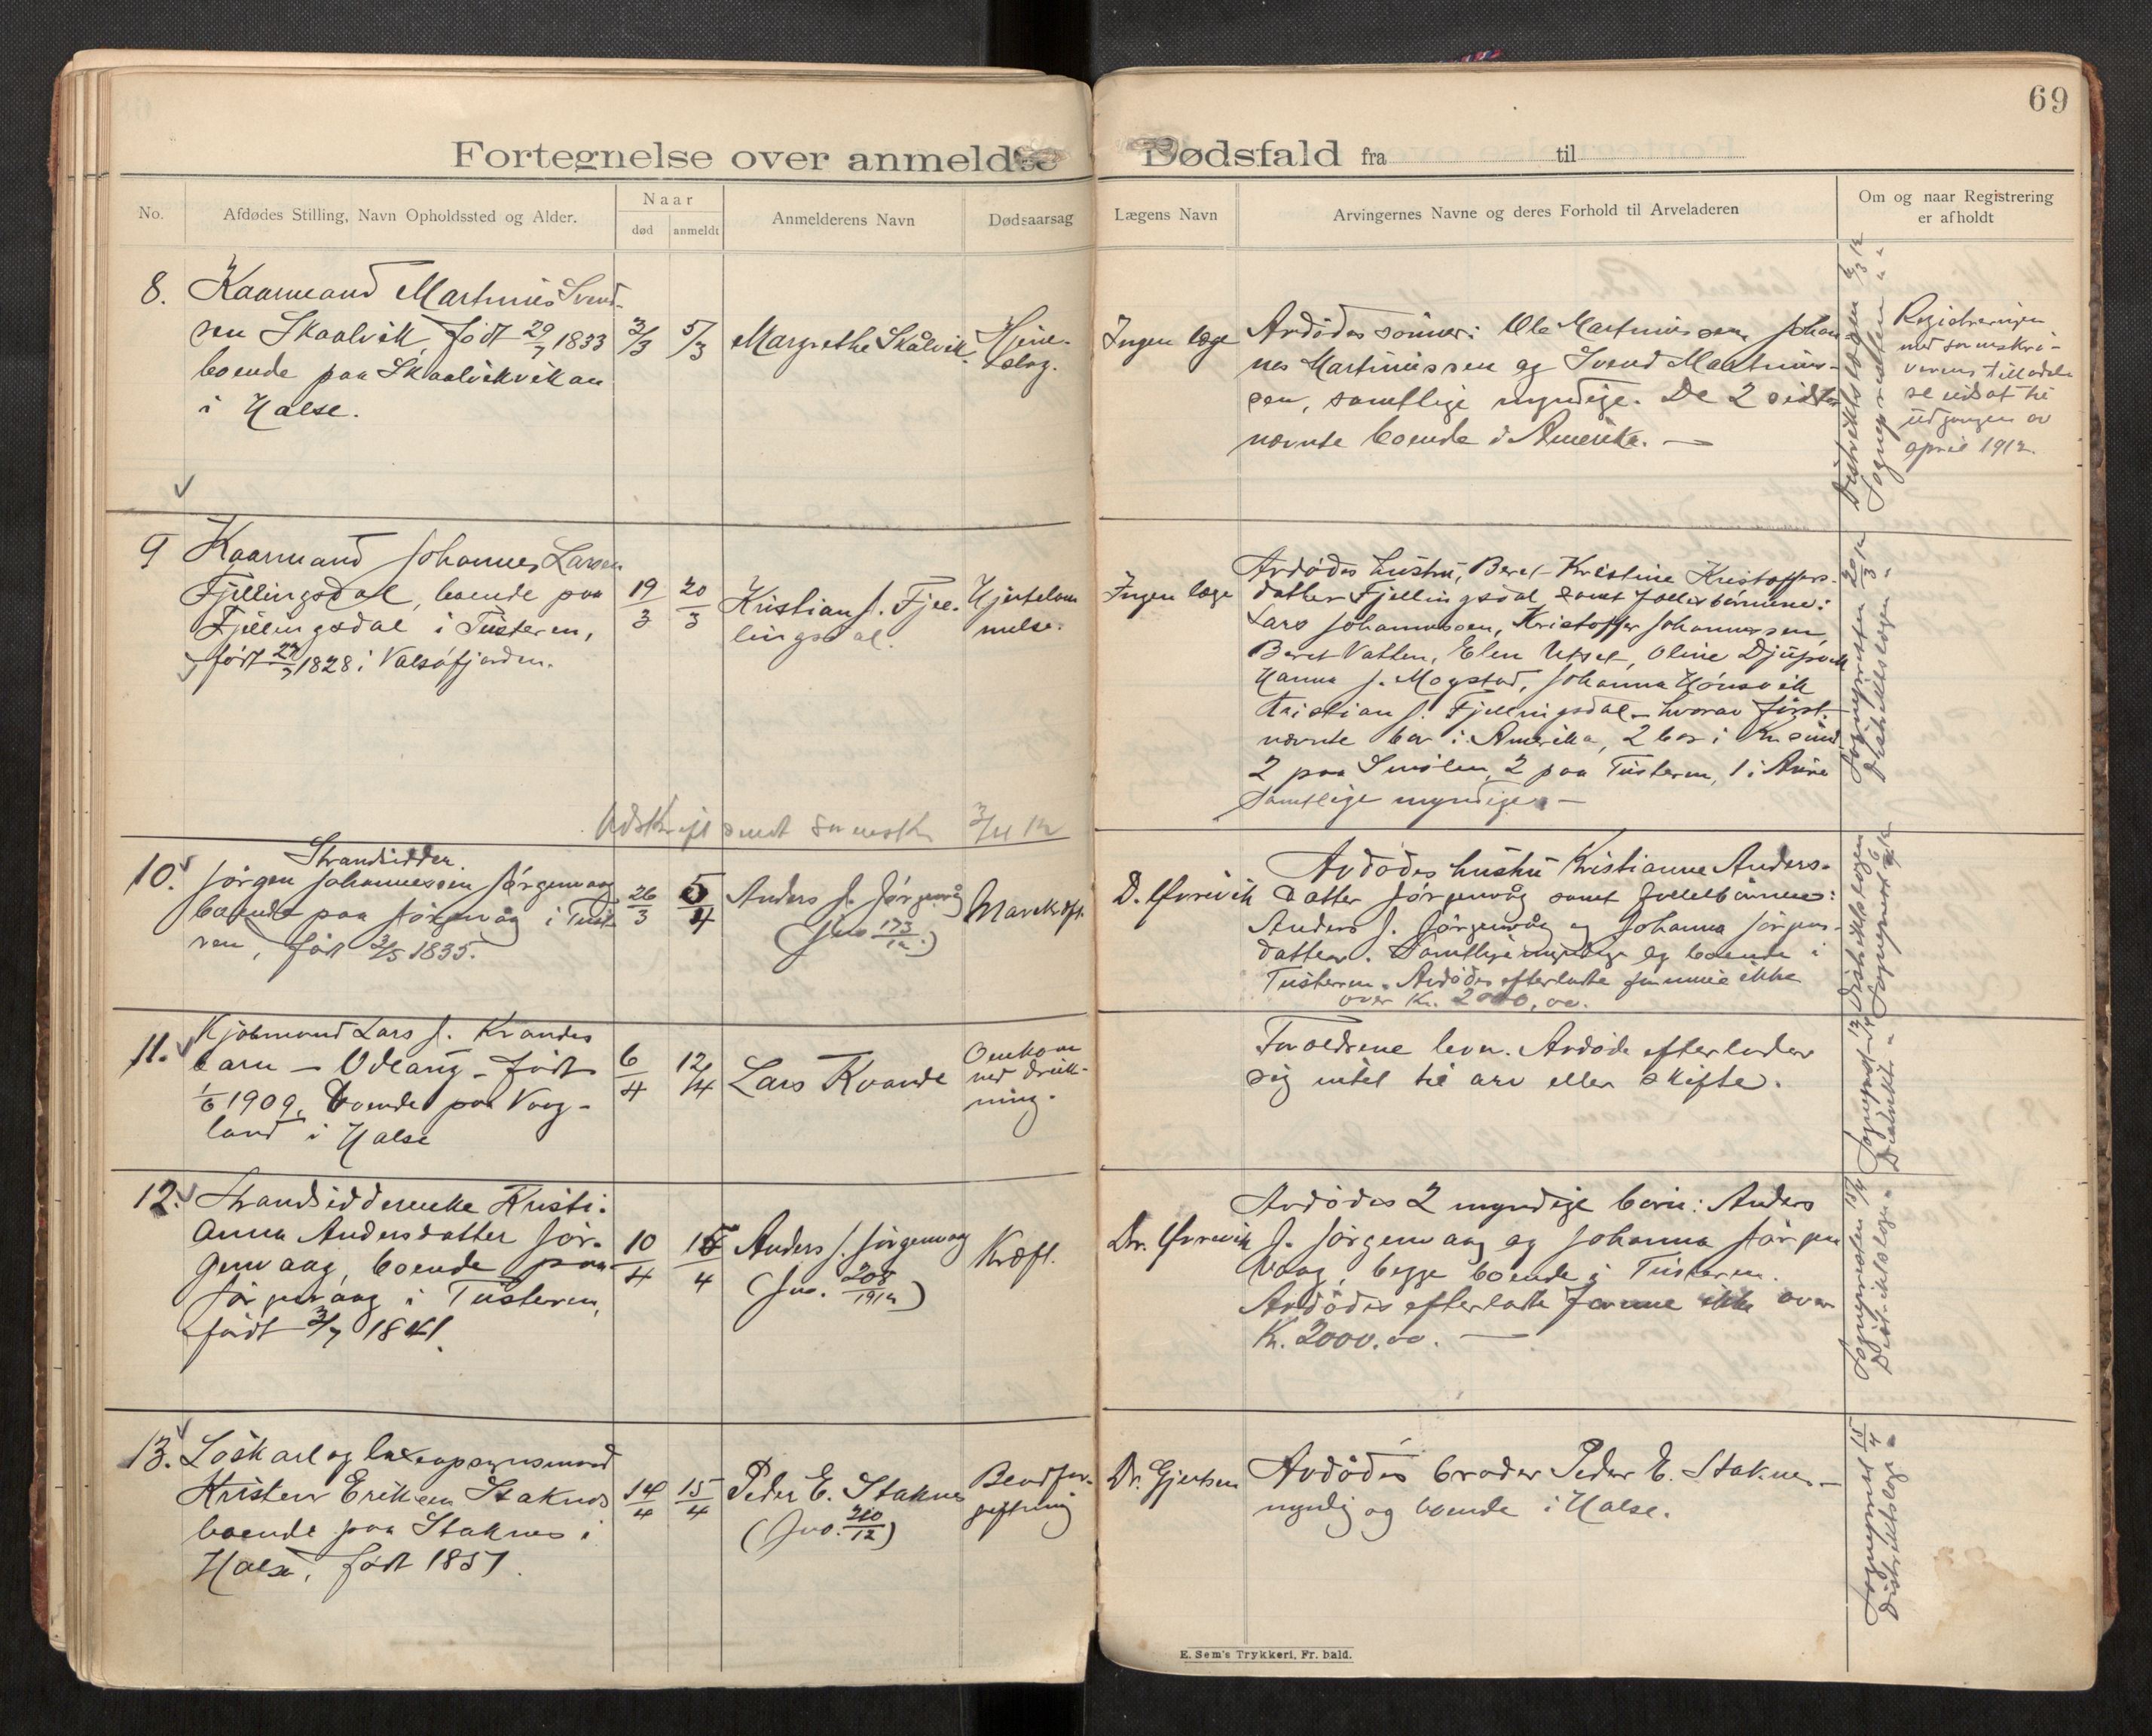 69
Fortegnelse over anmeldte Dødsfald fra til
No.
Afdødes Stilling, Navn Opholdssted og Alder.
Naar
død
anmeldt
Anmelderens Navn
Dødsaarsag
Lægens Navn
Arvingernes Navne og deres Forhold til Arveladeren
Om og naar Registrering
er afholdt
8. Kaarmand Martinus Svend-
sen Skaalvik, født 29/7 1833
boende paa Skaalvikvikan
i Halse.
3/3
5/3
Margrethe Skålvik.
Hjerne-
slag.
Ingen læge
Avdødes sønner: Ole Martinussen, Johan
nes Martinussen og Svend Martinus-
sen, samtlige myndige. De 2 sidst
nævnte boende i Amerika. —
Distriktslægen 6/3 12
Sognepresten " "
Registreringen
med sorenskri-
verens tilladel
se udsat til
udgangen av
april 1912.
9 Kaarmand Johannes Larsen
Fjellingsdal, boende paa
Fjellingsdal i Tusteren,
født 27/3 1828 i Valsøfjorden.
19/3
20/3
Kristian J. Fjel-
lingsdal.
Hjertelam
melse.
Ingen læge
Avdødes hustru, Beret Kristine Kristoffers-
datter Fjellingsdal samt fællesbørnene:
Lars Johannessen, Kristoffer Johannessen,
Beret Vatten, Elen Utset, Oline Djupvik
Hanna J. Mogstad, Johanna Hønsvik
Kristian J. Fjellingsdal - hvorav først-
nævnte bor i Amerika, 2 bor i Kr.sund
2 paa Smølen, 2 paa Tusteren, 1 i Aure
Samtlige myndige. —
Sognepresten 20/3 12
Distriktslægen "
Udskrift sendt sorensk. 3/4 12
10. Strandsidder
Jørgen Johannessen Jørgenvaag
boende paa Jørgenvåg i Tuste-
ren, født 3/5 1835.
26/3
5/4
Anders J. Jørgenvåg
(Jno 173/12.)
Mavekræft.
D. Øvrevik
Avdødes hustru Kristianne Anders-
datter Jørgenvåg samt fællesbørnene:
Anders J. Jørgenvåg og Johanna Jørgens-
datter. Samtlige myndige og boende i
Tusteren. Avdødes efterladte formue ikke
over Kr. 2000,00.
Distriktslægen
Sogneprest 6/4 12
11. Kjøbmand Lars J. Kvandes
barn — Odlaug - født
1/6 1909. Boende paa Vaag-
land i Halse
6/4
12/4
Lars Kvande
Omkom
ved druk-
ning.
Forældrene lever. Avdøde efterlader
sig intet til arv eller skifte.
12. Strandsidderenke Kristi-
anna Andersdatter Jør-
genvaag, boende paa
Jørgenvaag i Tusteren,
født 3/7 1841.
10/4
15/4
Anders J. Jørgenvaag
(Jno. 208/1912)
Kræft.
Dr. Øvrevik
Avdødes 2 myndige børn: Anders
J. Jørgenvaag og Johanna Jørgen
vaag, begge boende i Tusteren.
Avdødes efterladte formue ikke over
Kr. 2000.00. —
Sognepresten 15/4
Distriktslægen "
13. Løskarl og lakseopsynsmand
Kristen Eriksen Staknes
boende paa Staknes i
Halse, født 1851.
14/4
15/4
Peder E. Staknes
(Jno. 210/12)
Blodfor-
giftning
Dr. Gjertsen
Avdødes broder Peder E. Staknes —
myndig og boende i Halse.
Sogneprest 15/4
Distriktslæge "
E. Sem's Trykkeri, Fr. hald.